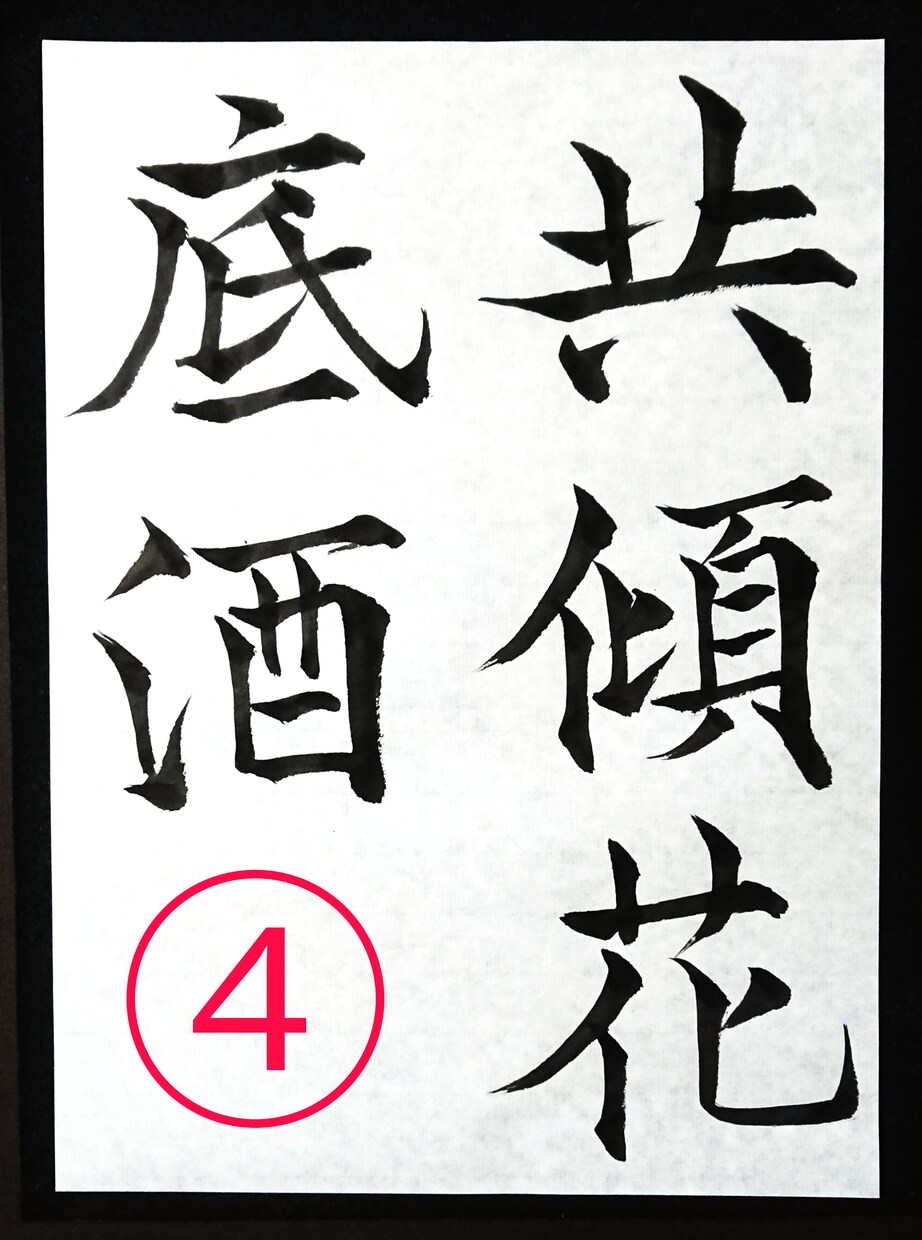 共傾花
底酒
④